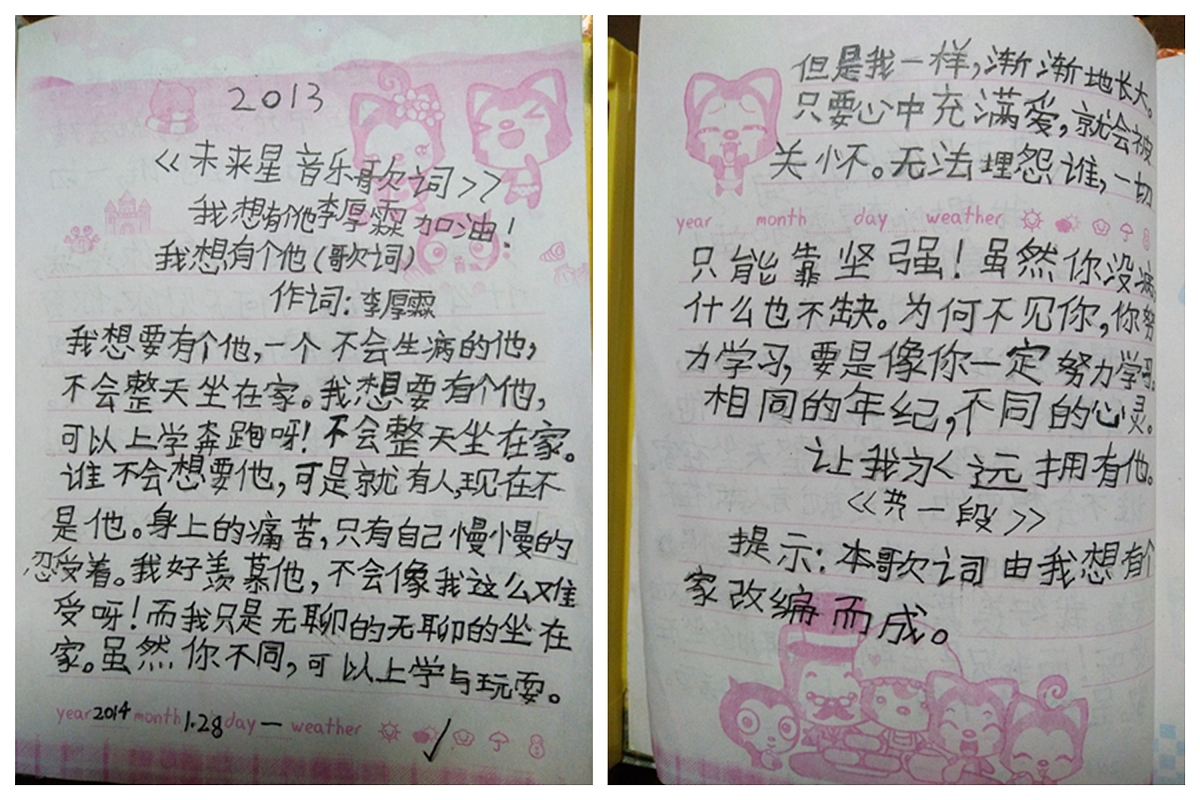 2013
<<未来星音乐歌词>>
我想有个他李厚霖加油!
我想有个他(歌词)
作词:李厚霖
我想要有个他,一个不会生病的他,
不会整天坐在家。我想要有个他,
可以上学奔跑呀!不会整天坐在家。
谁不会想要他,可是就有人,现在不
是他。身上的痛苦,只有自己慢慢的
忍受着。我好羡慕他,不会像我这么难
受呀!而我只是无聊的无聊的坐在
家。虽然你不同,可以上学与玩耍。
year 2014 month 1.28 day 一 weather
但是我一样,渐渐地长大。
只要心中充满爱,就会被
关怀。无法埋怨谁,一切
year month day weather
只能靠坚强!虽然你没病
什么也不缺。为何不见你,你努
力学习,要是像你一定努力学习。
相同的年纪,不同的心灵。
让我永远拥有他。
<<共一段>>
提示:本歌词由我想有个
家改编而成。